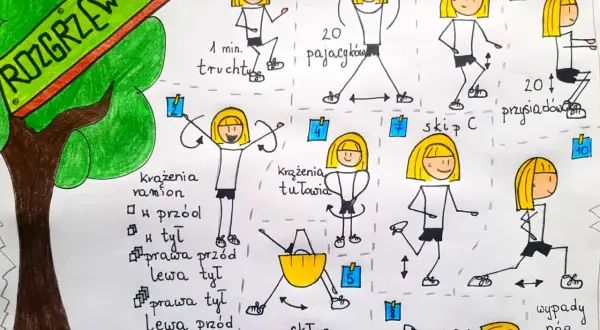 ROZGRZEW
1 min.
truchtu
20
pajacyków
20
przysiadów
2
krążenia
ramion
w przód
w tył
prawa przód
lewa tył
prawa tył
lewa przód
4
krążenia
tułowia
7
skip C
10
5
8
wypady
nóg